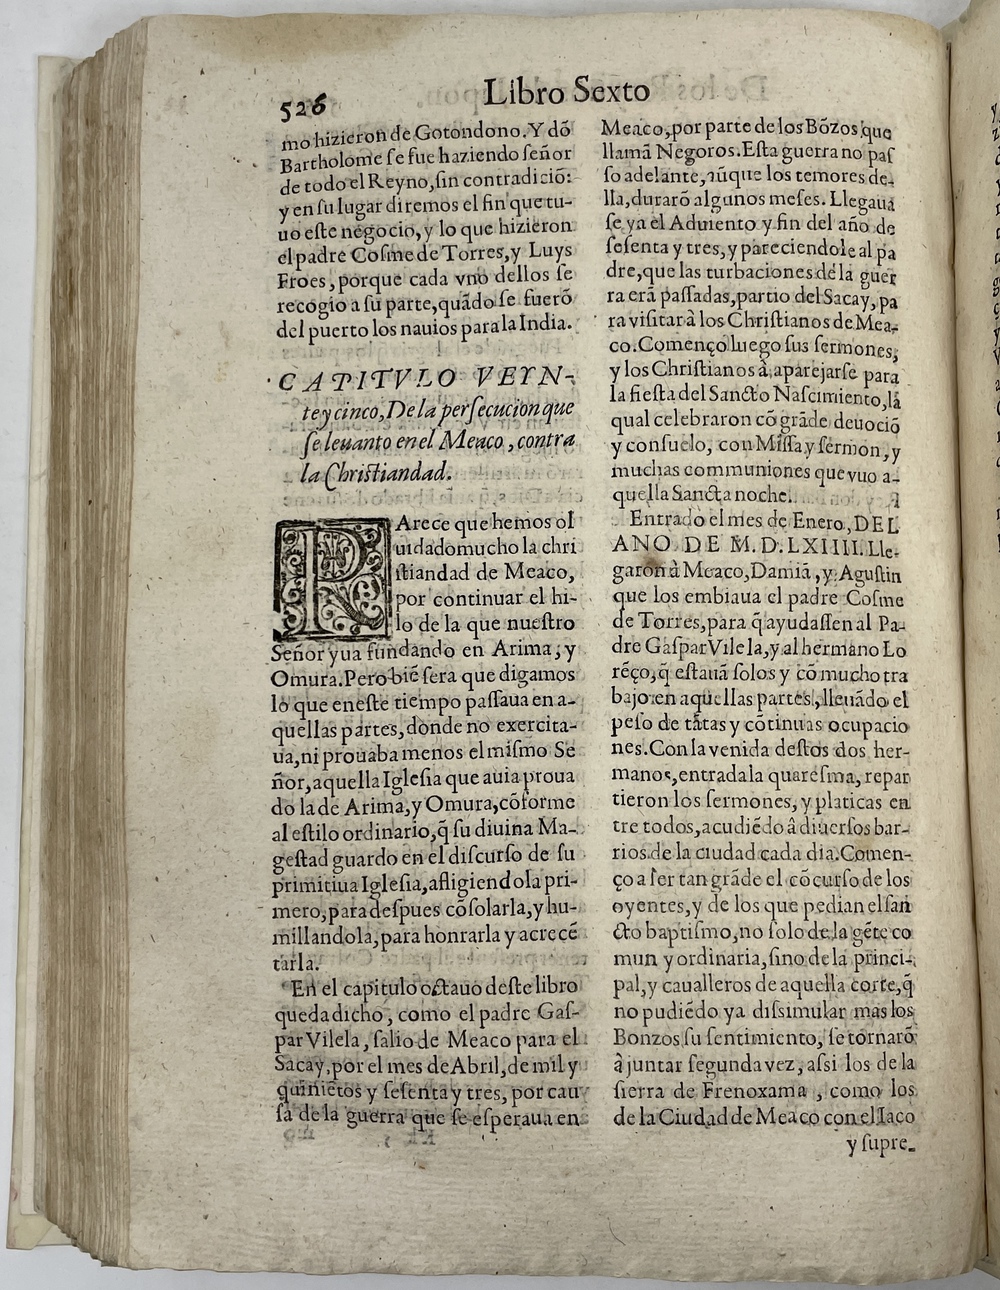 526
Libro Sexto
mo hizieron de Gotondono. Y dõ
Bartholome ſe fue haziendo ſeñor
de todo el Reyno, ſin contradiciõ:
y en ſu lugar diremos el fin que tu-
uo eſte negocio, y lo que hizieron
el padre Coſme de Torres, y Luys
Froes, porque cada vno dellos ſe
recogio a ſu parte, quãdo ſe fuerõ
del puerto los nauios para la India.
CAPITVLO VEYN-
te y cinco, De la perſecucion que
ſe leuanto en el Meaco, contra
la Chriſtiandad.
PArece que hemos ol
uidado mucho la chri
ſtiandad de Meaco,
por continuar el hi-
lo de la que nueſtro
Señor yua fundando en Arima, y
Omura. Pero biẽ ſera que digamos
lo que en eſte tiempo paſſaua en a-
quellas partes, donde no exercita-
ua, ni prouaba menos el miſmo Se
ñor, aquella Igleſia que auia proua
do la de Arima, y Omura, cõforme
al eſtilo ordinario, q̃ ſu diuina Ma-
geſtad guardo en el diſcurſo de ſu
primitiua Igleſia, afligiendola pri-
mero, para deſpues cõſolarla, y hu-
millandola, para honrarla y acrecẽ
tarla.
En el capitulo octauo deſte libro
queda dicho, como el padre Gaſ-
par Vilela, ſalio de Meaco para el
Sacay, por el mes de Abril, de mil y
quiniẽtos y ſeſenta y tres, por cau
ſa de la guerra que ſe eſperaua en
Meaco, por parte de los Bõzos que
llamã Negoros. Eſta guerra no paſ
ſo adelante, aũque los temores de-
lla, durarõ algunos meſes. Llegaua
ſe ya el Aduiento y fin del año de
ſeſenta y tres, y pareciendole al pa
dre, que las turbaciones de la guer
ra erã paſſadas, partio del Sacay, pa
ra viſitar à los Chriſtianos de Mea-
co. Començo luego ſus ſermones,
y los Chriſtianos â aparejarſe para
la fieſta del Sancto Naſcimiento, la
qual celebraron cõ grãde deuociõ
y conſuelo, con Miſſa y ſermon, y
muchas communiones que vuo a-
quella Sancta noche.
Entrado el mes de Enero, DEL
ANO DE M.D.LXIIII. Lle-
garon à Meaco, Damiã, y Aguſtin
que los embiaua el padre Coſme
de Torres, para q̃ ayudaſſen al Pa-
dre Gaſpar Vilela, y al hermano Lo
rẽço, q̃ eſtauã ſolos y cõ mucho tra
bajo en aquellas partes, lleuãdo el
peſo de tãtas y cõtinuas ocupacio
nes. Con la venida deſtos dos her-
manos, entrada la quareſma, repar
tieron los ſermones, y platicas en
tre todos, acudiẽdo â diuerſos bar-
rios de la ciudad cada dia. Comen-
ço a ſer tan grãde el cõcurſo de los
oyentes, y de los que pedian el ſan
cto baptiſmo, no ſolo de la gẽte co
mun y ordinaria, ſino de la princi-
pal, y caualleros de aquella corte, q̃
no pudiẽdo ya diſsimular mas los
Bonzos ſu ſentimiento, ſe tornarõ
â juntar ſegunda vez, aſsi los de la
ſierra de Frenoxama, como los
de la Ciudad de Meaco con el Iaco
y ſupre-